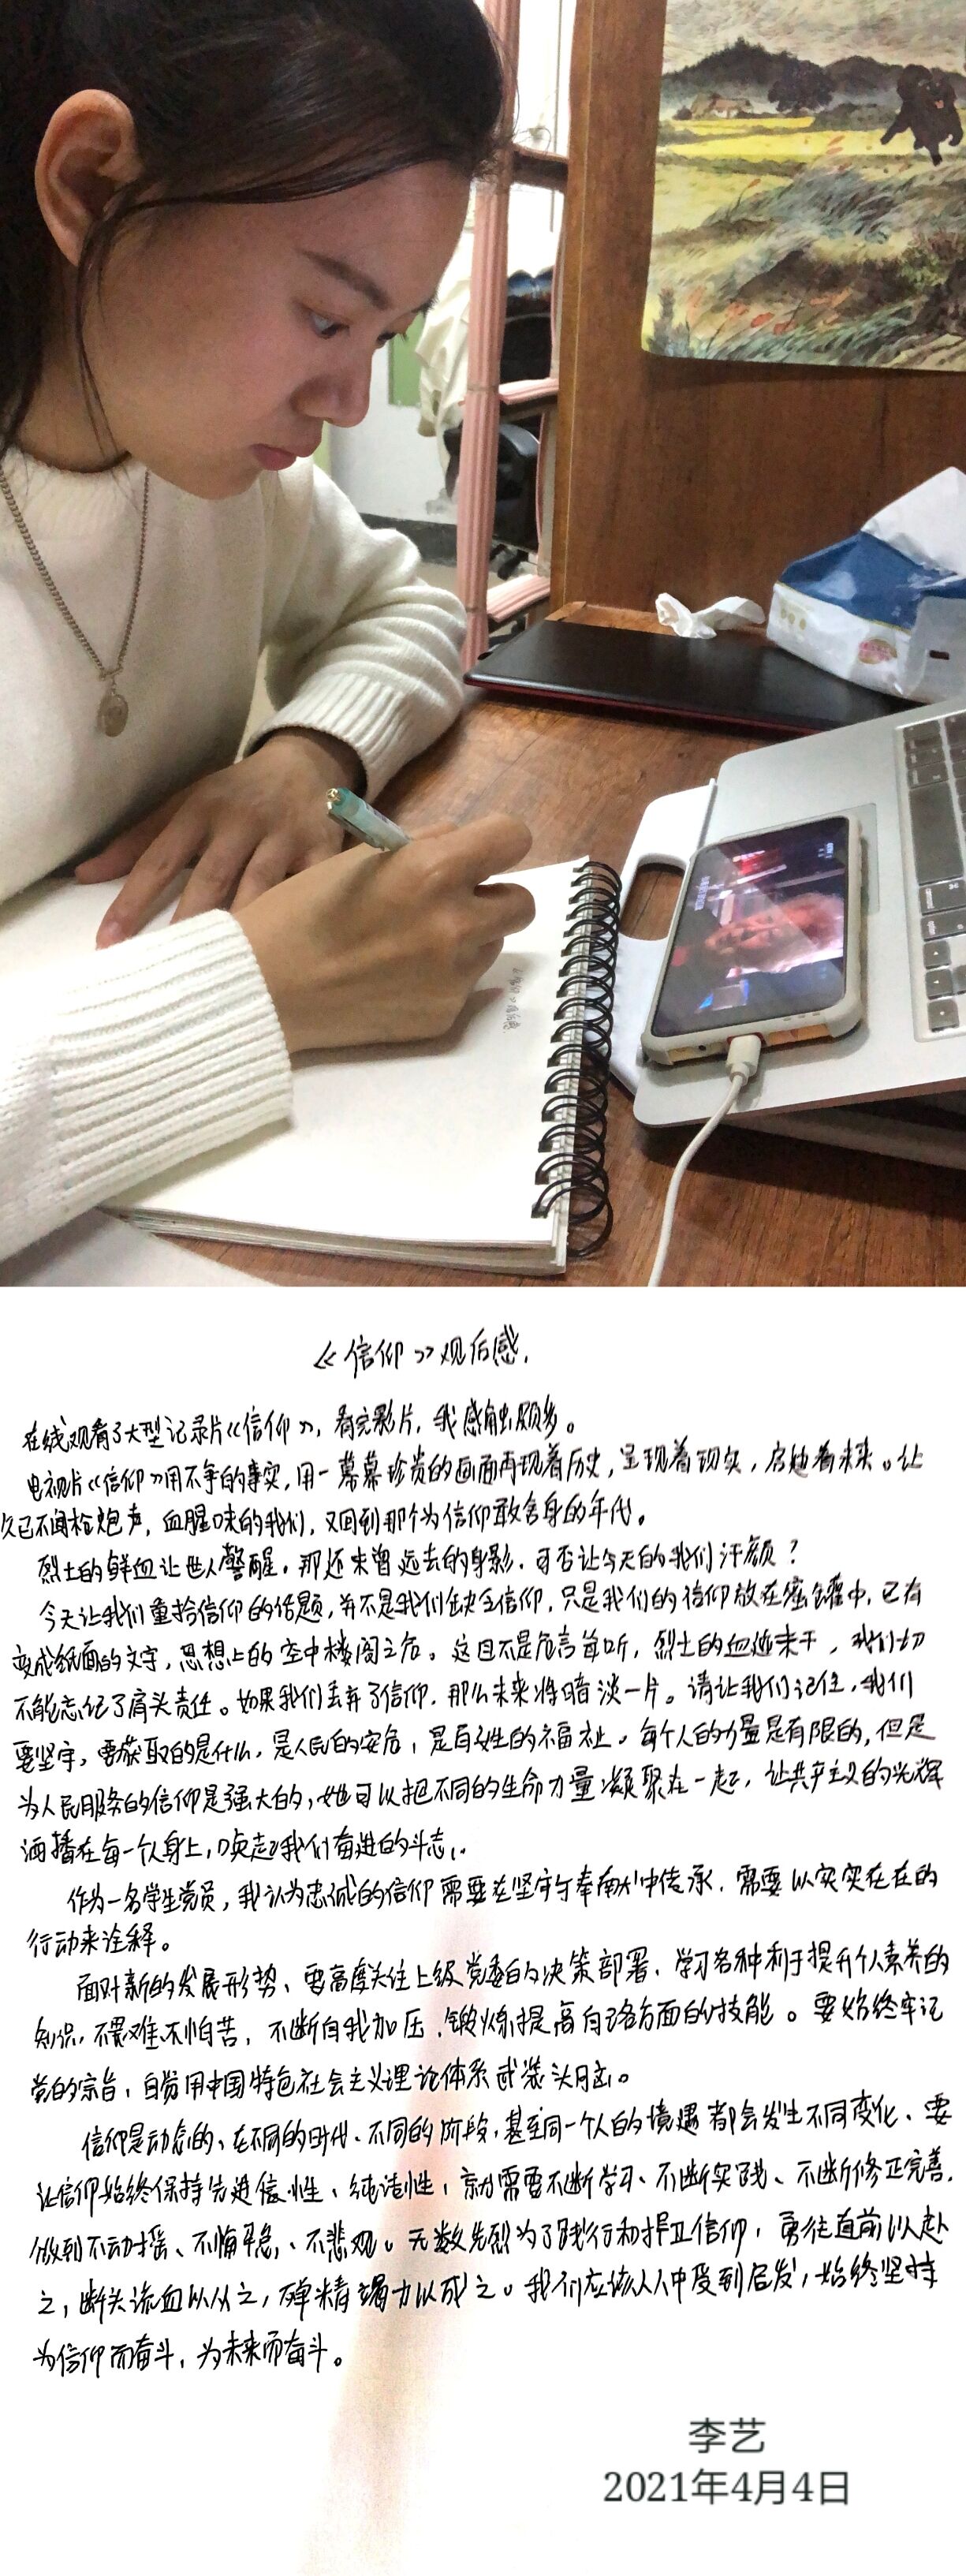 《信仰》观后感.
在线观看了大型记录片《信仰》，看完影片，我感触颇多。
电视片《信仰》用不争的事实，用一幕幕珍贵的画面再现着历史，呈现着现实，启迪着未来。让
久已不闻枪炮声，血腥味的我们，又回到那个为信仰敢舍身的年代。
烈士的鲜血让世人警醒，那还未曾远去的身影，可否让今天的我们汗颜？
今天让我们重拾信仰的话题，并不是我们缺乏信仰，只是我们的信仰放在蜜罐中，已有
变成纸面的文字，思想上的空中楼阁之危。这但不是危言耸听，烈士的血迹未干，我们切
不能忘记了肩头责任。如果我们丢弃了信仰，那么未来将暗淡一片。请让我们记住，我们
要坚守，要获取的是什么，是人民的安危，是百姓的福祉。每个人的力量是有限的，但是
为人民服务的信仰是强大的，她可以把不同的生命力量凝聚在一起，让共产主义的光辉
洒播在每一个人身上，唤起我们奋进的斗志。
作为一名学生党员，我认为忠诚的信仰需要在坚守与奉献中传承，需要以实实在在的
行动来诠释。
面对新的发展形势、要高度关注上级党委的决策部署、学习各种利于提升个人素养的
知识，不畏难不怕苦，不断自我加压，锻炼提高自己各方面的技能。要始终牢记
党的宗旨，自觉用中国特色社会主义理论体系武装头脑。
信仰是动态的、在不同的时代、不同的阶段，甚至同一个人的境遇都会发生不同变化、要
让信仰始终保持先进性、纯洁性，就需要不断学习、不断实践、不断修正完善，
做到不动摇、不懈怠、不悲观。无数先烈为了践行和捍卫信仰，勇往直前以赴
之，断头流血以从之，殚精竭力以成之。我们应该从中受到启发，始终坚持
为信仰而奋斗，为未来而奋斗。
李艺
2021年4月4日